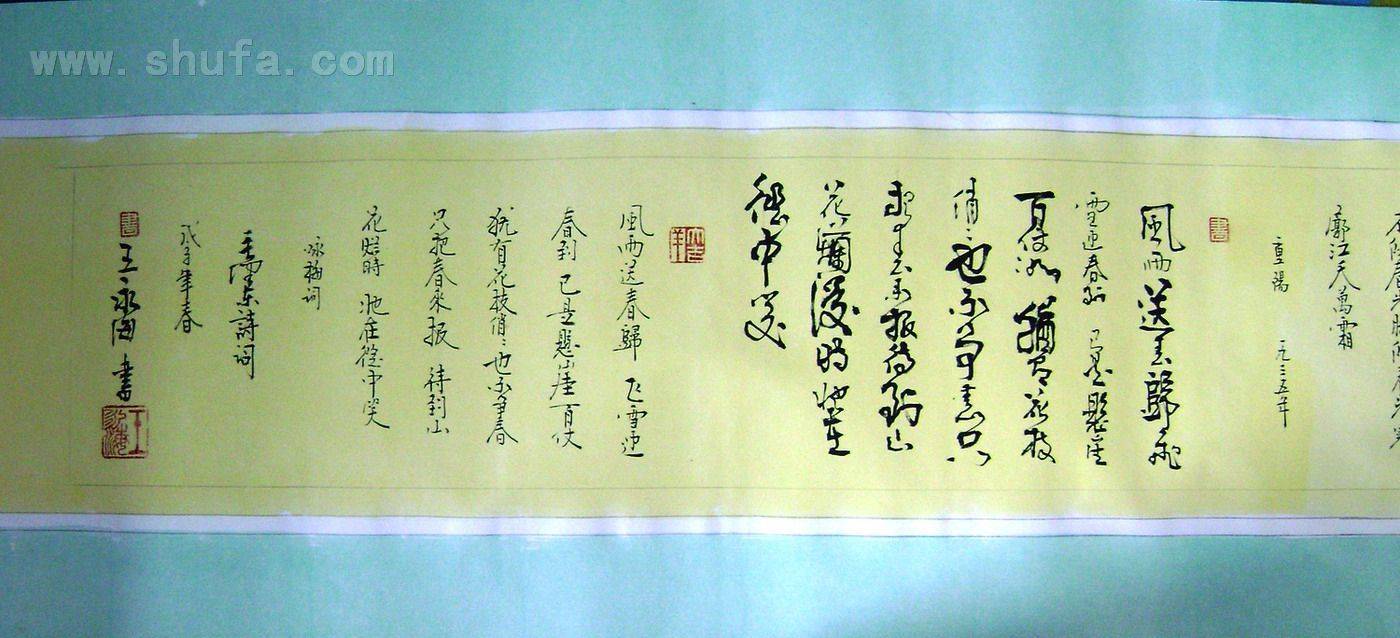 www.shufa.com
廓江天萬霜
重陽 一九三五年
書
風雨送春歸飛
雪迎春到 已是懸崖
百仗冰 猶有花枝
俏〻也不争春只
把春來報待到山
花爛漫時她在
叢中笑
風雨送春歸 飞雪迎
春到 已是懸崖百仗
犹有花枝俏〻也不争春
只把春來报 待到山
花時 她在從中笑
咏梅词
毛澤东詩词
戊子年春
書
王永海 書
王永海